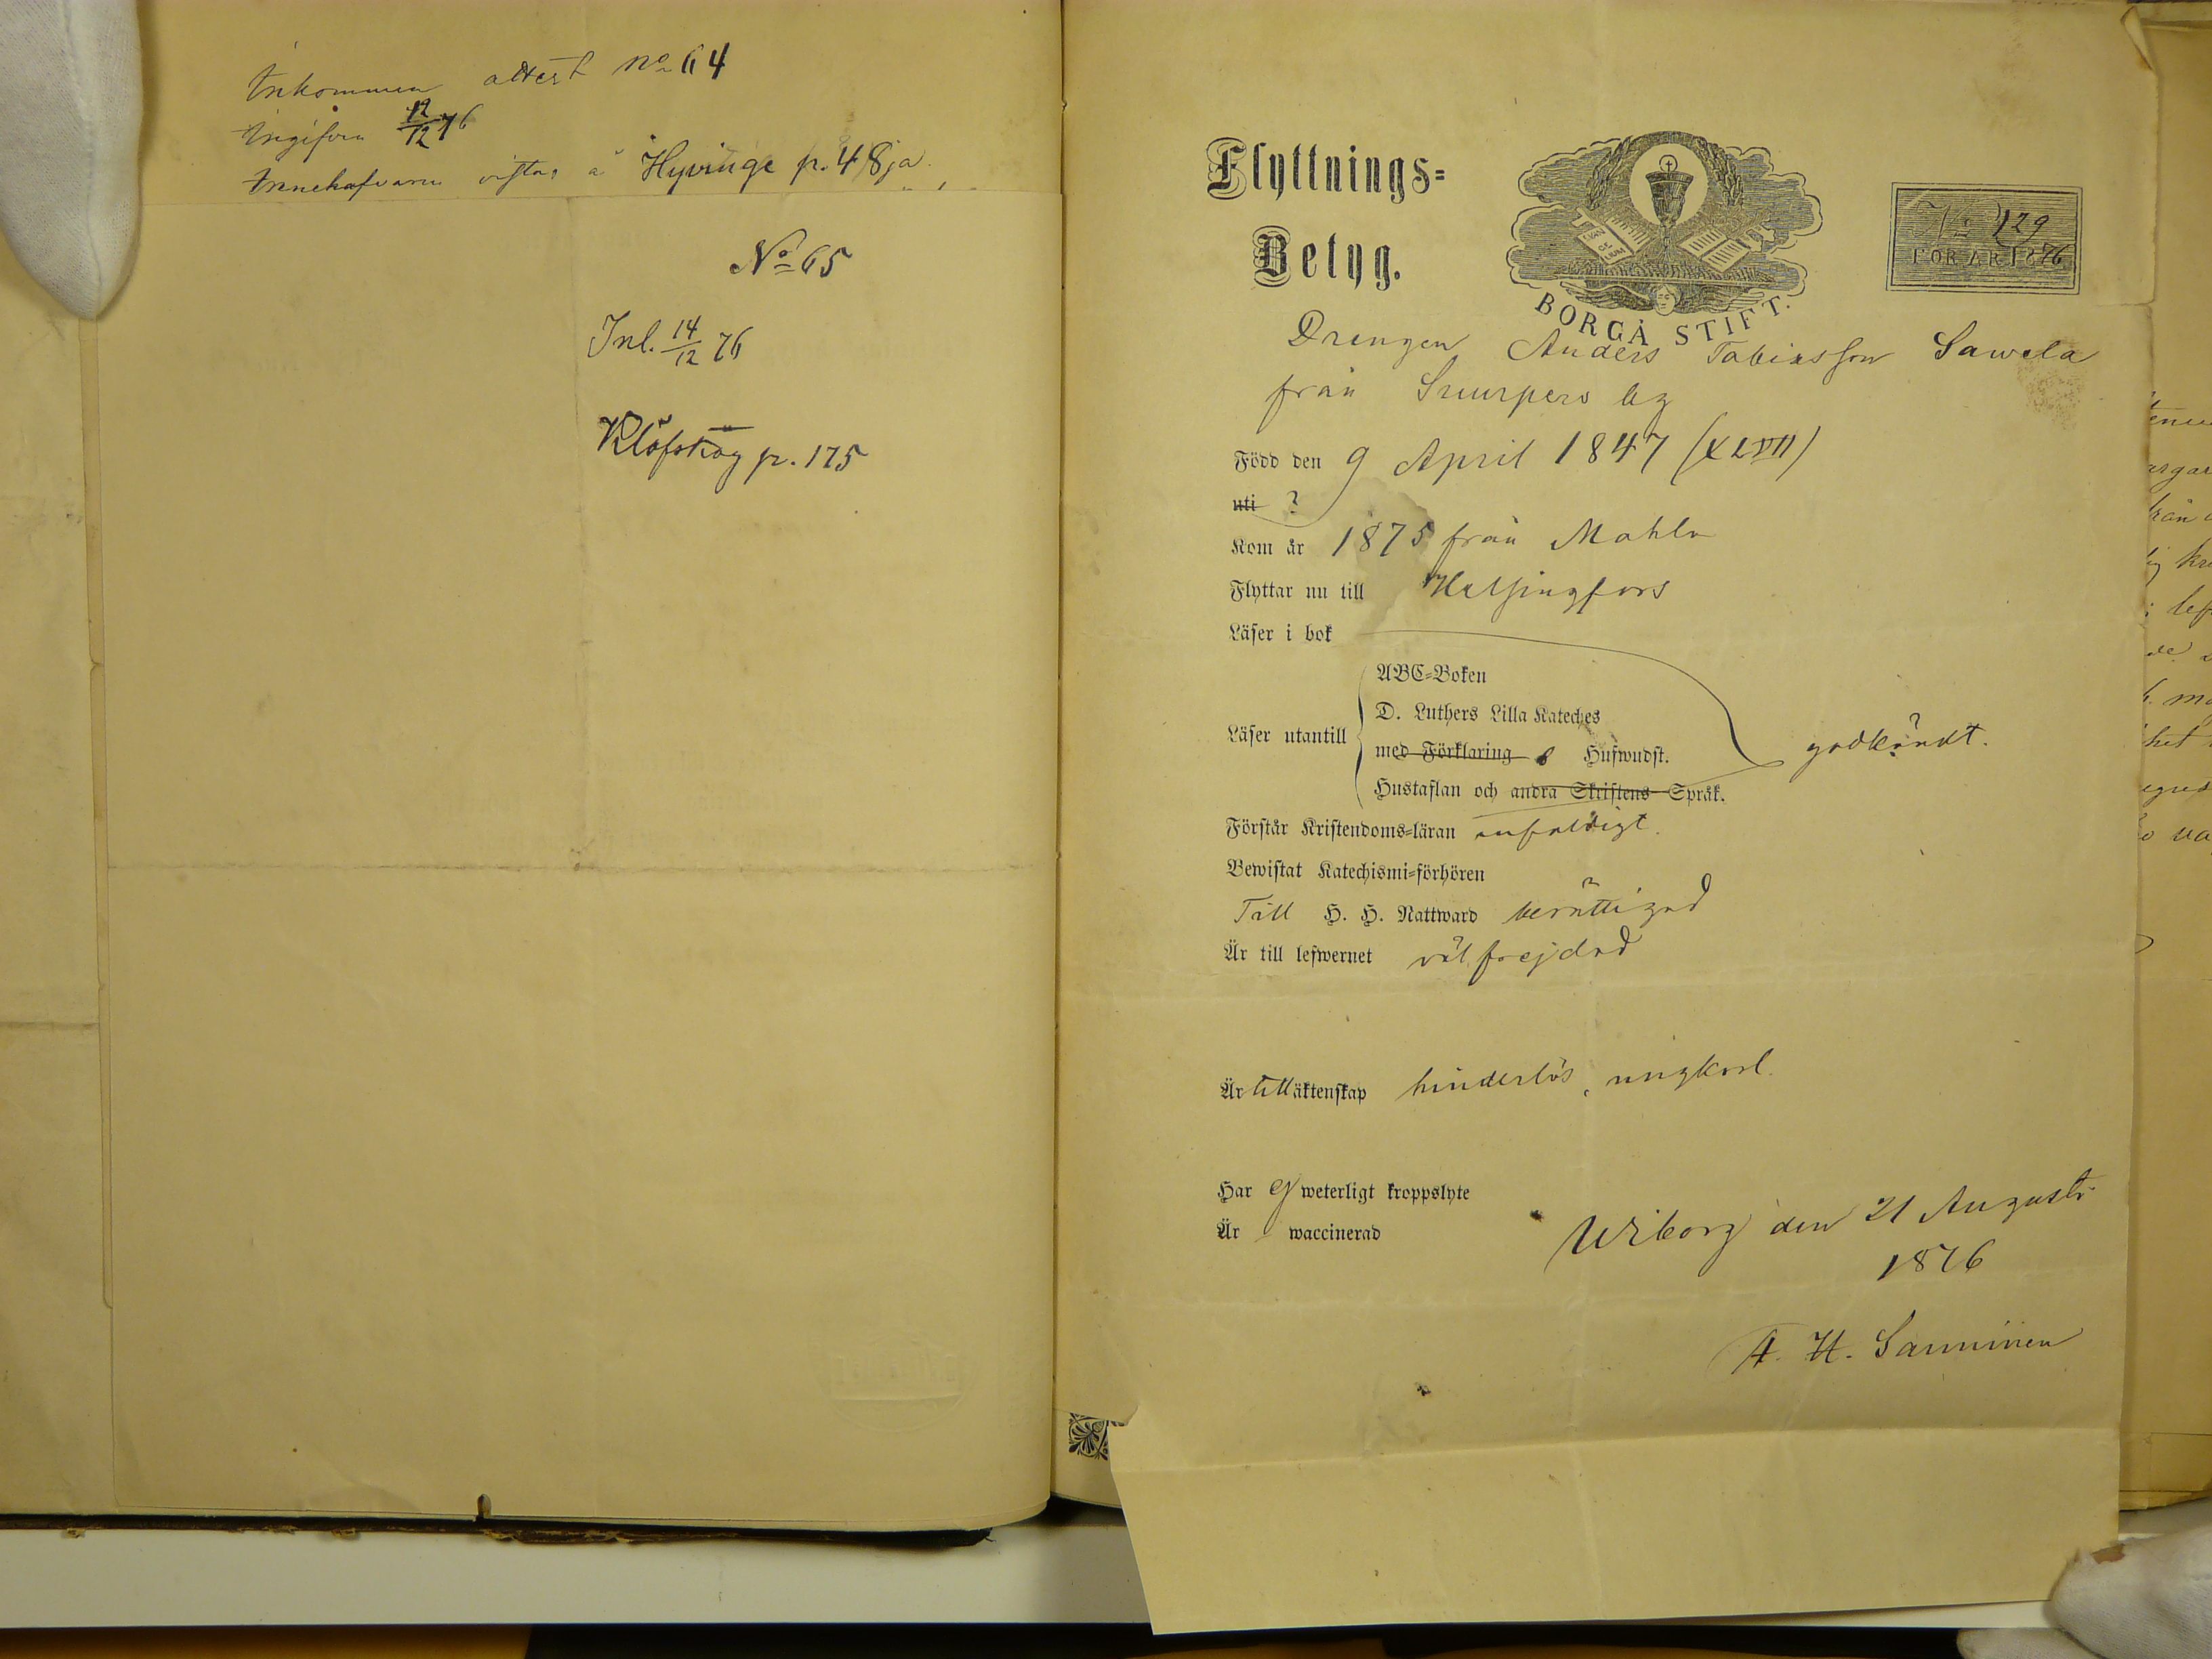 Inkommen attest No 64
Ingifven 12/12 76
Innehafvaren vistas å Hyvinge p. 48ja.
No 65
Inl. 14/12 76
Klöfskog p. 175
Flyttnings=
Betyg.
EVAN
GE
LIUM
BORGÅ STIFT.
No 129
FÖR ÅR 1876
Drengen Anders Tobiasson Sawela
från Suurpero by
Född den 9 April 1847 (XLVII)
uti ?
Kom år 1875 från Mohla
Flyttar nu till Helsingfors
Läser i bok
ABC=Boken
D. Luthers Lilla Kateches
Läser utantill
med Förklaring Hufwudst.
godkändt.
Hustaflan och andra Skriftens Språk.
Förstår Kristendoms=läran enfaldigt.
Bewistat Katechismi=förhören
Till H. H. Nattward berättigad
Är till lefwernet välfrejdad
Är till äktenskap hinderlös, ungkarl.
Har ej weterligt kroppslyte
Är waccinerad
Wiborg den 21 Augusti
1876
A. H. Sanninen